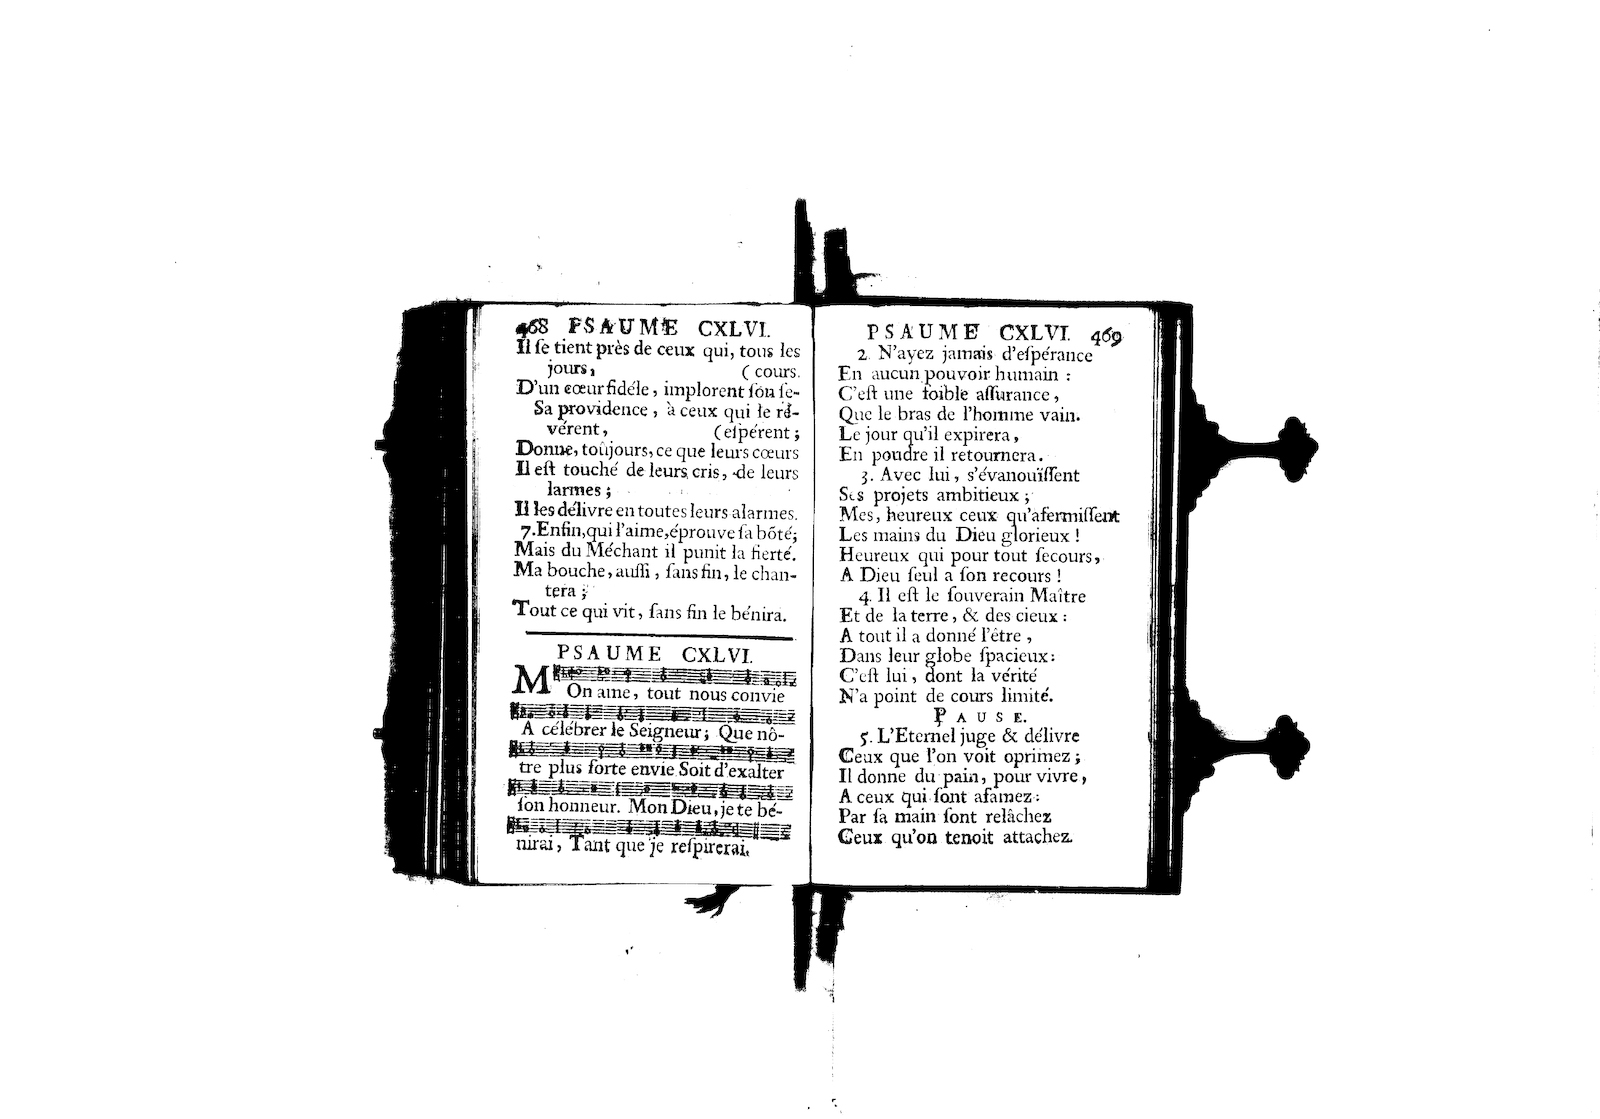 468 PSAUME CXLVI.
Il ſe tient près de ceux qui, tous les
jours, ( cours.
D'un cœur fidéle, implorent ſon ſe-
Sa providence, à ceux qui le ré-
vérent, (eſpérent;
Donne, toûjours, ce que leurs cœurs
Il eſt touché de leurs cris, de leurs
larmes;
Il les délivre en toutes leurs alarmes.
7. Enfin, qui l'aime, éprouve ſa bõté;
Mais du Méchant il punit la fierté.
Ma bouche, auſſi, ſans fin, le chan-
tera;
Tout ce qui vit, ſans fin le bénira.
PSAUME CXLVI.
MOn ame, tout nous convie
A célébrer le Seigneur; Que nô-
tre plus forte envie Soit d'exalter
ſon honneur. Mon Dieu, je te bé-
nirai, Tant que je reſpirerai.
PSAUME CXLVI. 469
2. N'ayez jamais d'eſpérance
En aucun pouvoir humain :
C'eſt une foible aſſurance,
Que le bras de l'homme vain.
Le jour qu'il expirera,
En poudre il retournera.
3. Avec lui, s'évanouïſſent
Ses projets ambitieux;
Mes, heureux ceux qu'afermiſſent
Les mains du Dieu glorieux !
Heureux qui pour tout ſecours,
A Dieu ſeul a ſon recours !
4. Il eſt le ſouverain Maître
Et de la terre, & des cieux :
A tout il a donné l'être,
Dans leur globe ſpacieux:
C'eſt lui, dont la vérité
N'a point de cours limité.
PAUSE.
5. L'Eternel juge & délivre
Ceux que l'on voit oprimez;
Il donne du pain, pour vivre,
A ceux qui ſont afamez:
Par ſa main ſont relâchez
Ceux qu'on tenoit attachez.